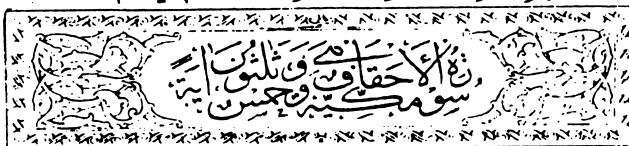 سورة الأحقاف مكية وهي خمس وثلثون آية